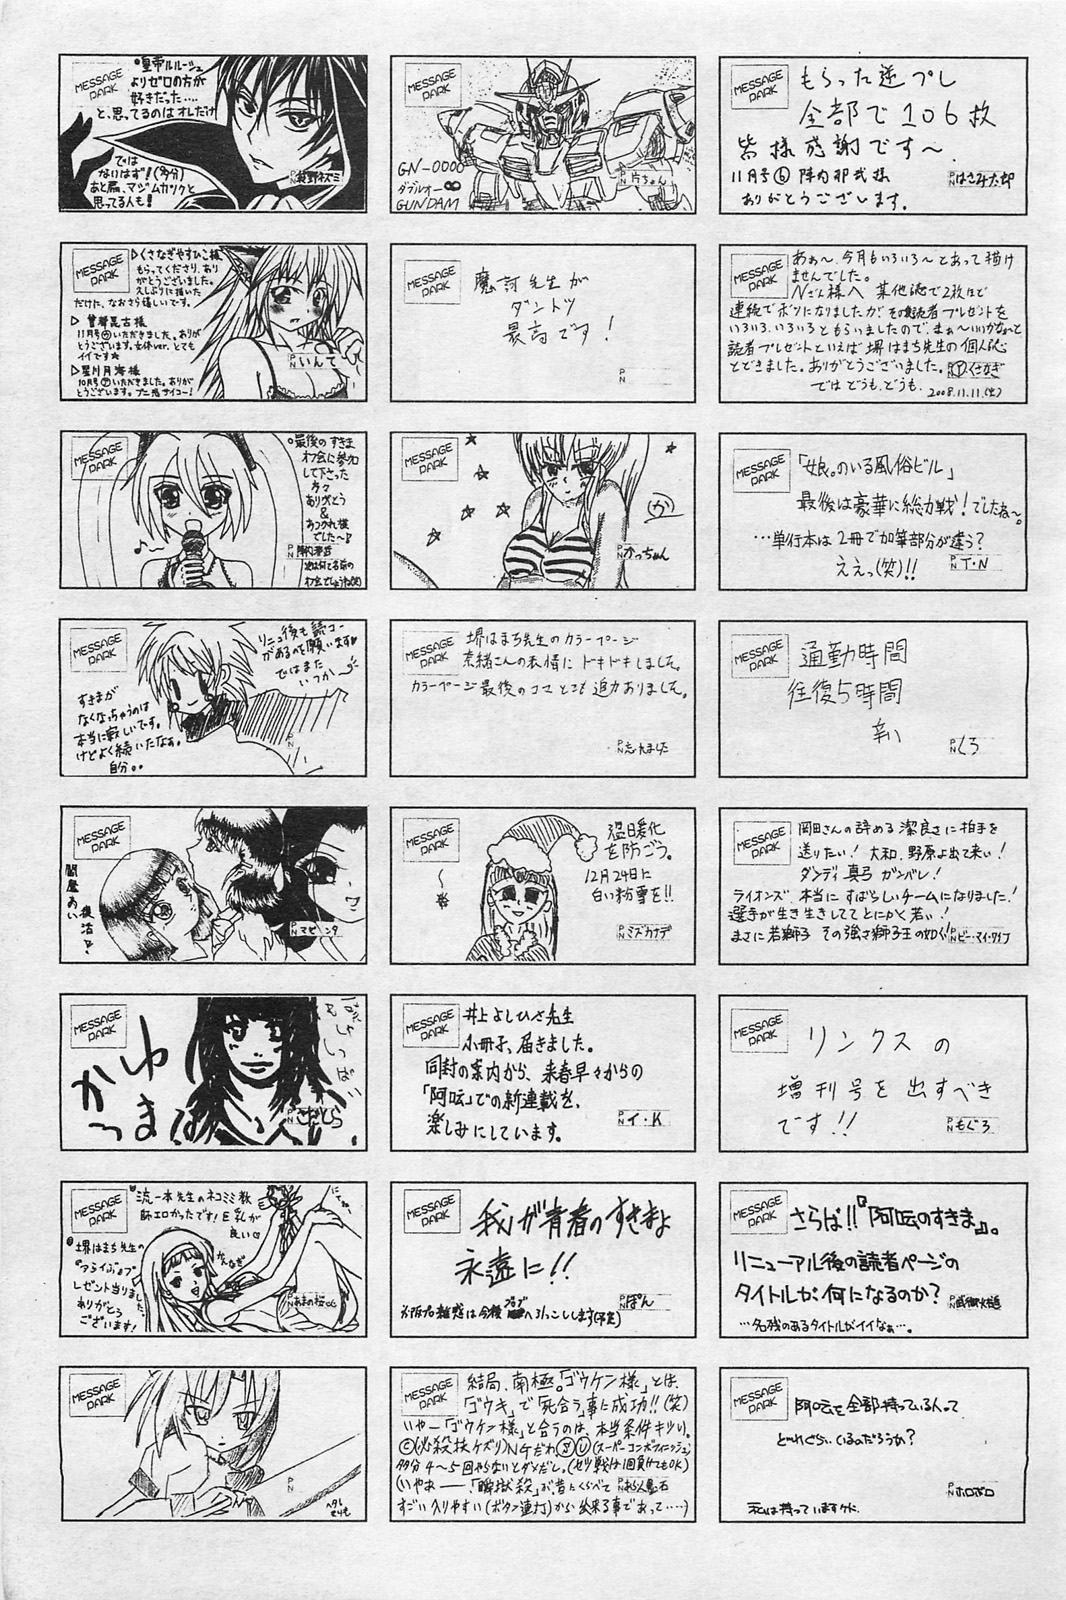 MESSAGE PARK
皇帝ルルーシュ
よりゼロの方が
好きだった…
と、思ってるのはオレだけ
では
ないはず!(多分)
思ってる人も!
MESSAGE PARK
GN-0000
ダブルオー
GUNDAM
片ちゃん
MESSAGE PARK
もらった逆プレ
全部で106枚
皆様感謝です～
11月号⑯陣内那武様
ありがとうございます。
はさみ太郎
MESSAGE PARK
▷くさなぎやすひこ様
もらってくださり、あり
がとうございました。
久しぶりに描いた
だけに、なおさら嬉しいです。
11月号いただきました。ありが
とうございます。女体ver.とても
イイです★
▷星川月海様
10月号いただきました。ありが
とうございます。
いんて
MESSAGE PARK
魔訶先生が
ダントツ
最高です!
MESSAGE PARK
あぁ～、今月もいろいろ～とあって描け
ませんでした。
Nさん様へ 某他誌で2枚ほど
連続でボツになりましたが、その読者プレゼントを
いろいろ、いろいろともらいましたので、まぁ～いいかなぁと
読者プレゼントといえば堺はまち先生の個人誌
とどきました。ありがとうございました。
くさなぎ
ではどうも、どうも。
2008.11.11.(火)
MESSAGE PARK
最後のすきま
オフ会に参加
して下さった
方々
ありがとう
&
おつかれ様
でした～♪
MESSAGE PARK
か
かっちゃん
MESSAGE PARK
「娘。のいる風俗ビル」
最後は豪華に総力戦!でしたね～。
…単行本は2冊で加筆部分が違う?
ええっ(笑)!!
T・N
MESSAGE PARK
リニュ後も読コー
があるのを願います♡
ではまた
いつか～
すきまが
なくなっちゃうのは
本当に寂しいです。
けどよく続いたなぁ。
自分。。
MESSAGE PARK
堺はまち先生のカラーページ
奈緒さんの表情にドキドキしました。
カラーページ最後のコマとても迫力ありました。
忘れました
MESSAGE PARK
通勤時間
往復5時間
辛い
くろ
MESSAGE PARK
閻魔あい
復活?
マゼンタ
MESSAGE PARK
温暖化
を防ごう。
12月24日に
白い粉雪を!!
ミズカナデ
MESSAGE PARK
岡田さんの辞める潔良さに拍手を
送りたい! 大和、野原よ出て来い!
ダンディ 真弓 ガンバレ!
ライオンズ 本当にすばらしいチームになりました!
選手が生き生きしててとにかく若い!
まさに若獅子 その強さ獅子王の如く!
MESSAGE PARK
MESSAGE PARK
井上よしひさ先生
小冊子、届きました。
同封の案内から、来春早々からの
「阿吽」での新連載を、
楽しみにしています。
イ・K
MESSAGE PARK
リンクスの
増刊号を出すべき
です!!
もぐろ
MESSAGE PARK
流一本先生のネコミミ教
師エロかったです!E乳が
良い
堺はまち先生の
レゼント当りました
ありがとう
ございます!
MESSAGE PARK
我が青春のすきまよ
永遠に!!
ぽん
MESSAGE PARK
さらば!!『阿吽のすきま』。
リニューアル後の読者ページの
タイトルが、何になるのか?
…名残のあるタイトルがイイなぁ…。
MESSAGE PARK
MESSAGE PARK
結局、南極。「ゴウケン様」とは、
「ゴウキ」で「死合う」事に成功!!(笑)
いやー「ゴウケン様」と合うのは、本当条件キツい。
多分4～5回やらないとダメだし。
(いやぁ――、「瞬獄殺」が昔にくらべて
すごい入りやすい(ボタン連打)から出来る事であって……)
MESSAGE PARK
阿吽を全部持っている人って
どれぐらいいるのだろうか?
ホロボロ
私は持っていますケド。